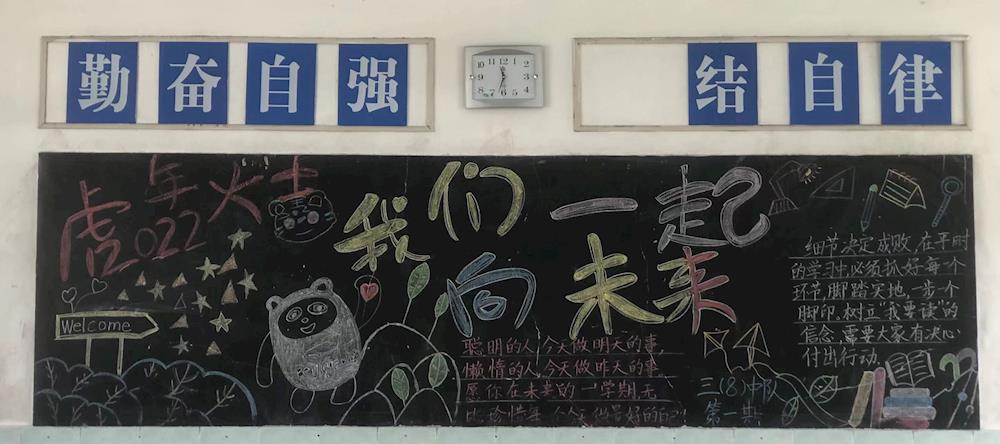 勤奋自强
结自律
10 11 12 1 2 3 4 5 6 7 8 9
虎年大吉
2022
我们一起
向未来
Welcome
聪明的人,今天做明天的事,
懒惰的人,今天做昨天的事,
愿你在未来的一学期无
比珍惜每一个今天,做最好的自己!
细节决定成败,在平时
的学习中必须抓好每个
环节,脚踏实地,一步一个
脚印,树立“我要读”的
信念,需要大家有决心
付出行动.
三(8)中队
第一期